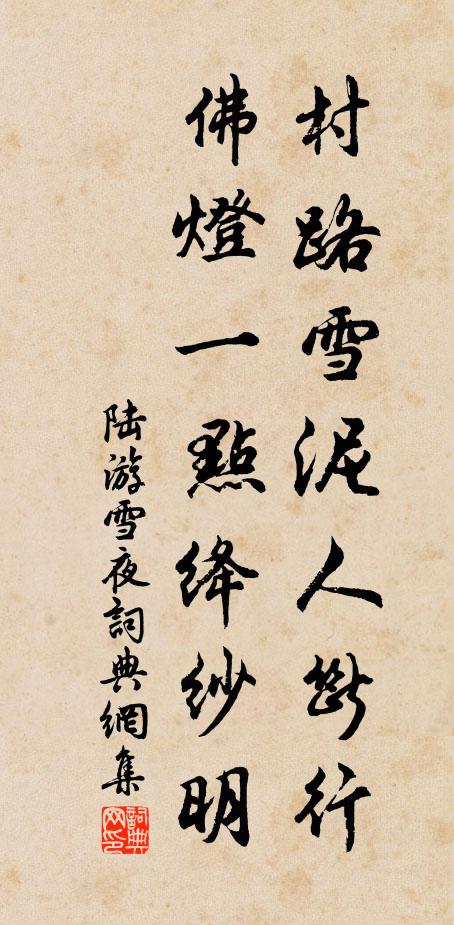 村路雪泥人斷行
佛燈一點絳紗明
陸游雪夜詞典網集
詞典网印